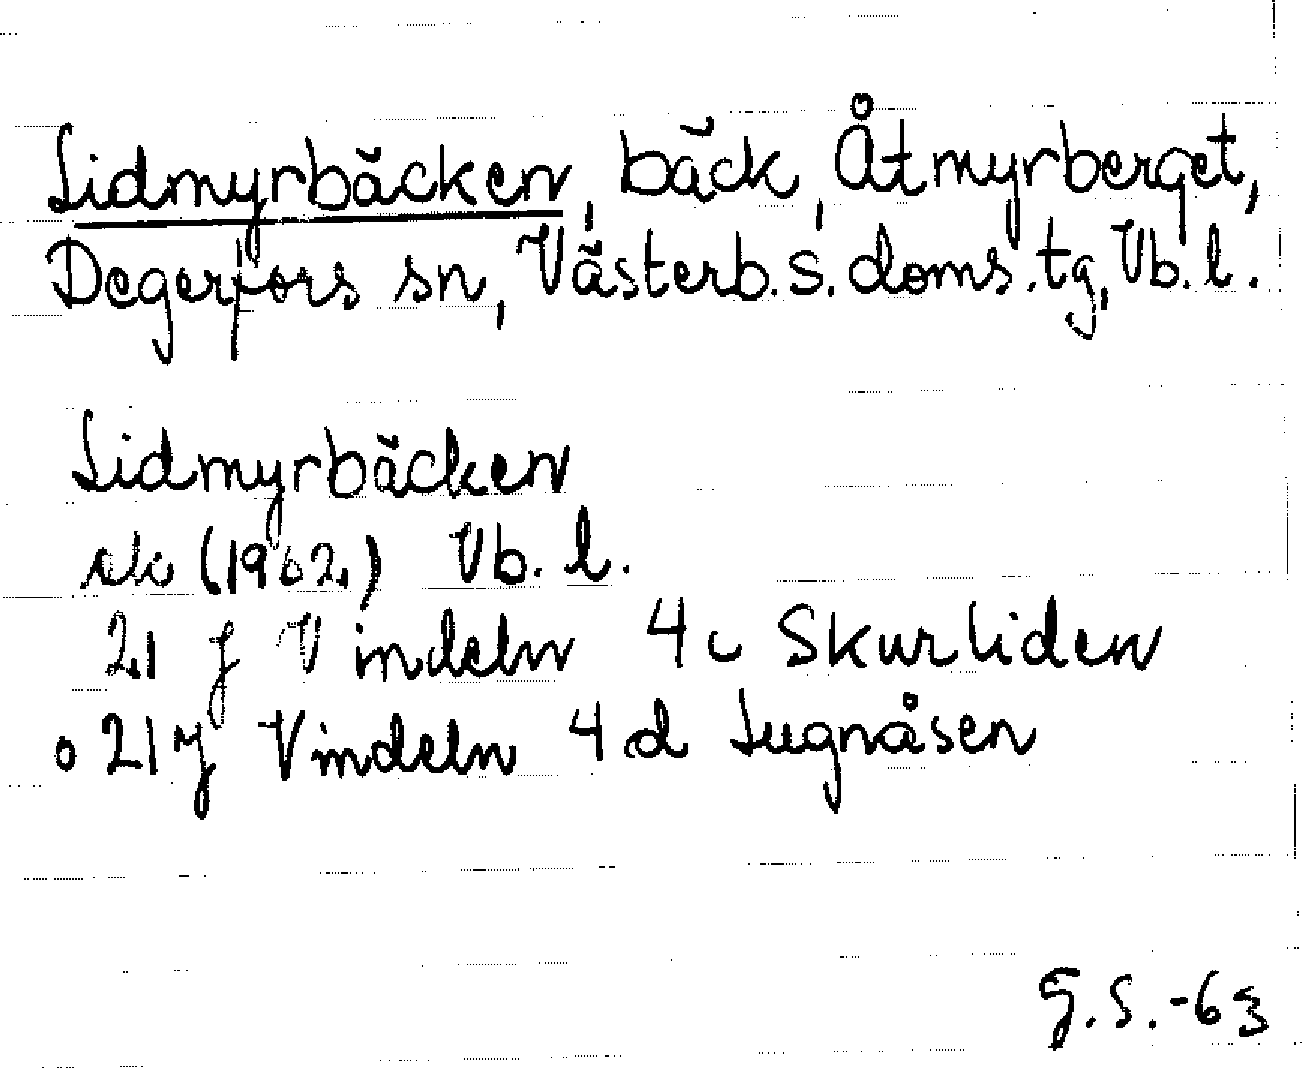 Lidmyrbäcken, bäck, Åtmyrberget,
Degerfors sn, Västerb. s. doms. tg, Vb. l.
Lidmyrbäcken
ek (1962) Vb. l.
21 J Vindeln 4 c Skurliden
o 21 J Vindeln 4 d Lugnåsen
G.S.-63